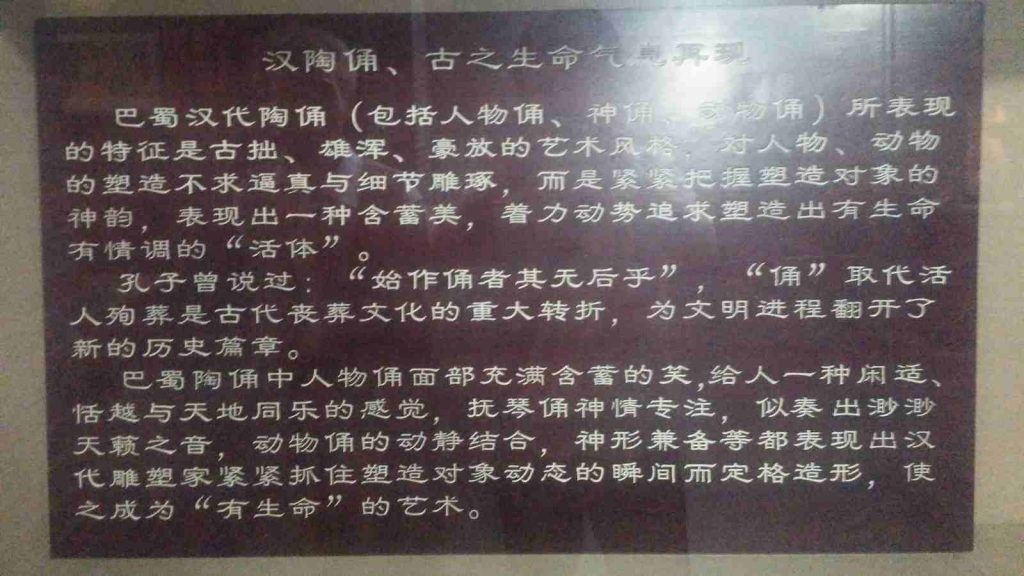 汉陶俑、古之生命气 再现
巴蜀汉代陶俑（包括人物俑、神俑、动物俑）所表现
的特征是古拙、雄浑、豪放的艺术风格，对人物、动物
的塑造不求逼真与细节雕琢，而是紧紧把握塑造对象的
神韵，表现出一种含蓄美，着力动势追求塑造出有生命
有情调的“活体”。
孔子曾说过：“始作俑者其无后乎”，“俑”取代活
人殉葬是古代丧葬文化的重大转折，为文明进程翻开了
新的历史篇章。
巴蜀陶俑中人物俑面部充满含蓄的笑,给人一种闲适、
恬越与天地同乐的感觉，抚琴俑神情专注，似奏出渺渺
天籁之音，动物俑的动静结合，神形兼备等都表现出汉
代雕塑家紧紧抓住塑造对象动态的瞬间而定格造形，使
之成为“有生命”的艺术。